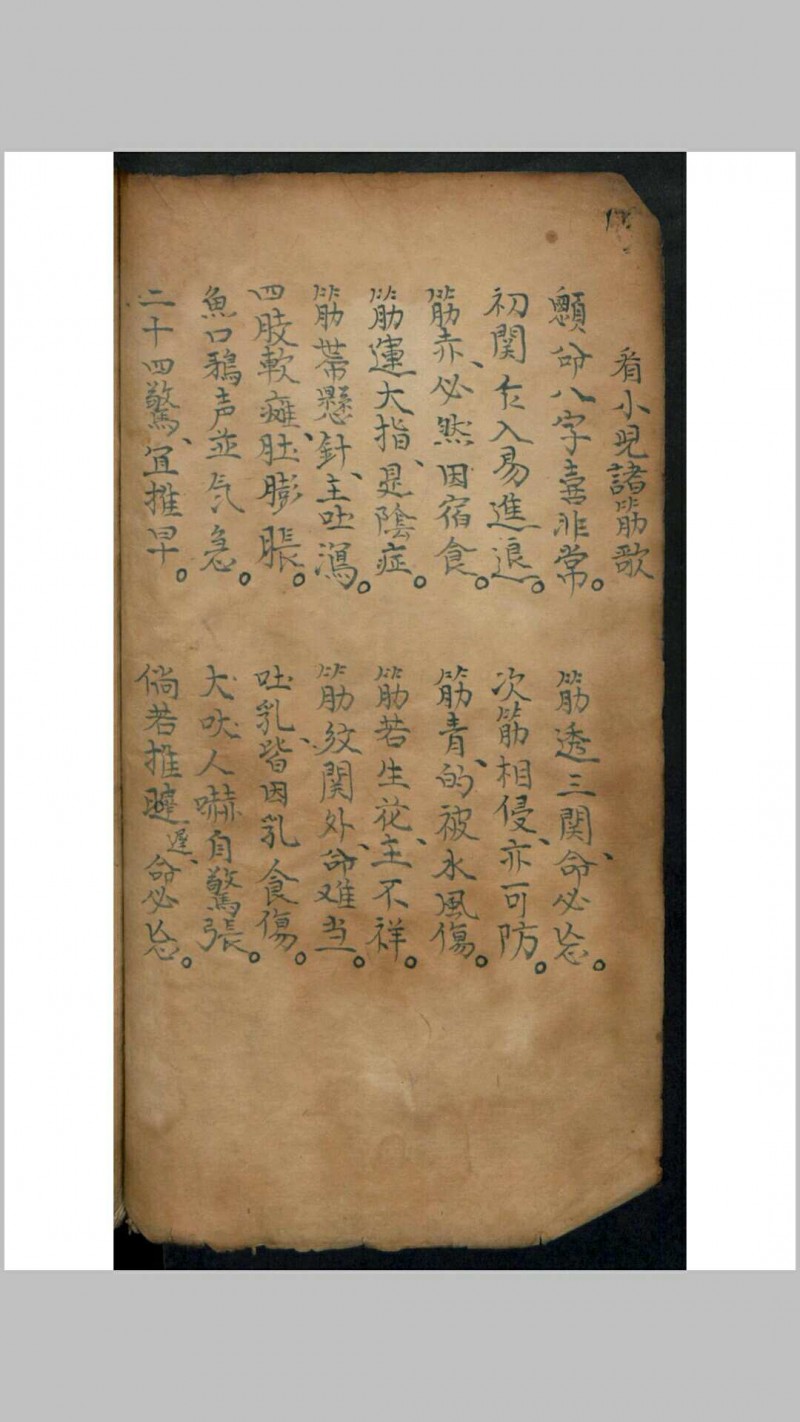 看小児諸筋歌
顖命八字喜非常。 筋透三関、命必忘。
初関乍入易進退。 次筋相侵、亦可防。
筋赤、必然因宿食。 筋青、的被水風傷。
筋運大指、是陰症。 筋若生花、主不祥。
筋帶懸針、主吐瀉。 筋紋関外、命难当。
四肢軟癱、肚膨脹。 吐乳、皆因乳食傷。
魚口鴉声並气急。 犬吠人嚇自驚張。
二十四驚、宜推早。 倘若推遲、命必忘。